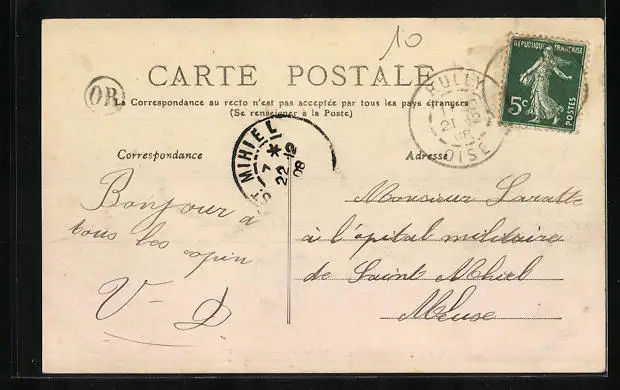 10
RÉPUBLIQUE FRANÇAISE
5c
POSTES
RULLY
21 12
08
OISE
CARTE POSTALE
OR
La Correspondance au recto n'est pas acceptée par tous les pays étrangers
(Se renseigner à la Poste)
ST MIHIEL
7 *
22-12
08
Correspondance
Adresse
Bonjour a
tous les copin
V-D
Monsieur Laratte
à l'opital militaire
de Saint Mhiel
Meuse